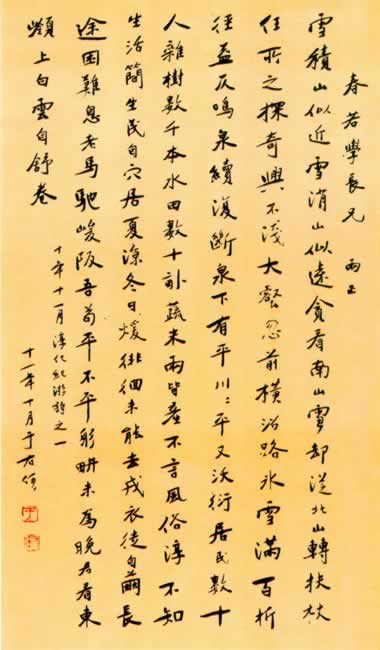 春若學長兄 正
雪積山似近雪消山似遠貪看南山雪却從北山轉扶杖
任所之探奇興不淺大壑忽前橫沿路冰雪滿百折
徑益仄鳴泉續復斷泉下有平川〻平又沃衍居民數十
人雜樹數千本水田數十畝蔬米兩皆產不言風俗淳不知
生活簡生民自穴居夏涼冬日煖徘徊未能去戎衣徒自繭長
途困難息老馬馳峻阪吾苟平不平躬耕未為晚君看東
嶺上白雲自舒卷
十年十一月淳化紀游詩之一
十一年十月于右任